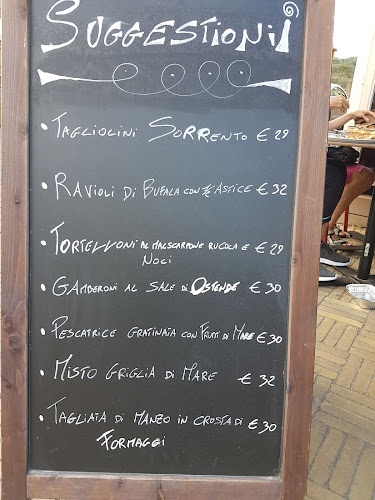 SUGGESTIONI
• TAGLIOLINI SORRENTO € 29
• RAVIOLI DI BUFALA CON ½ ASTICE € 32
• TORTELLONI AL MALSCARPONE RUCOLA E € 29
NOCI
• GAMBERONI AL SALE DI OSTENDE € 30
• PESCATRICE GRATINATA CON FRUTTI DI MARE € 30
• MISTO GRIGLIA DI MARE € 32
• TAGLIATA DI MANZO IN CROSTA DI € 30
FORMAGGI